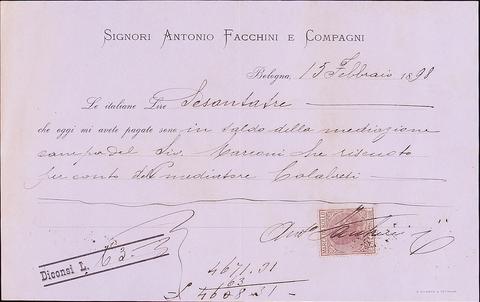 SIGNORI ANTONIO FACCHINI E COMPAGNI
Bologna, 15 Febbraio 1898
Le italiane Lire Sesantatre
che oggi mi avete pagate sono in saldo della mediazione
del Sig. Marconi che riscuoto
per conto del mediatore Calabresi
Diconsi L. 63
4671.31
63
4608.31